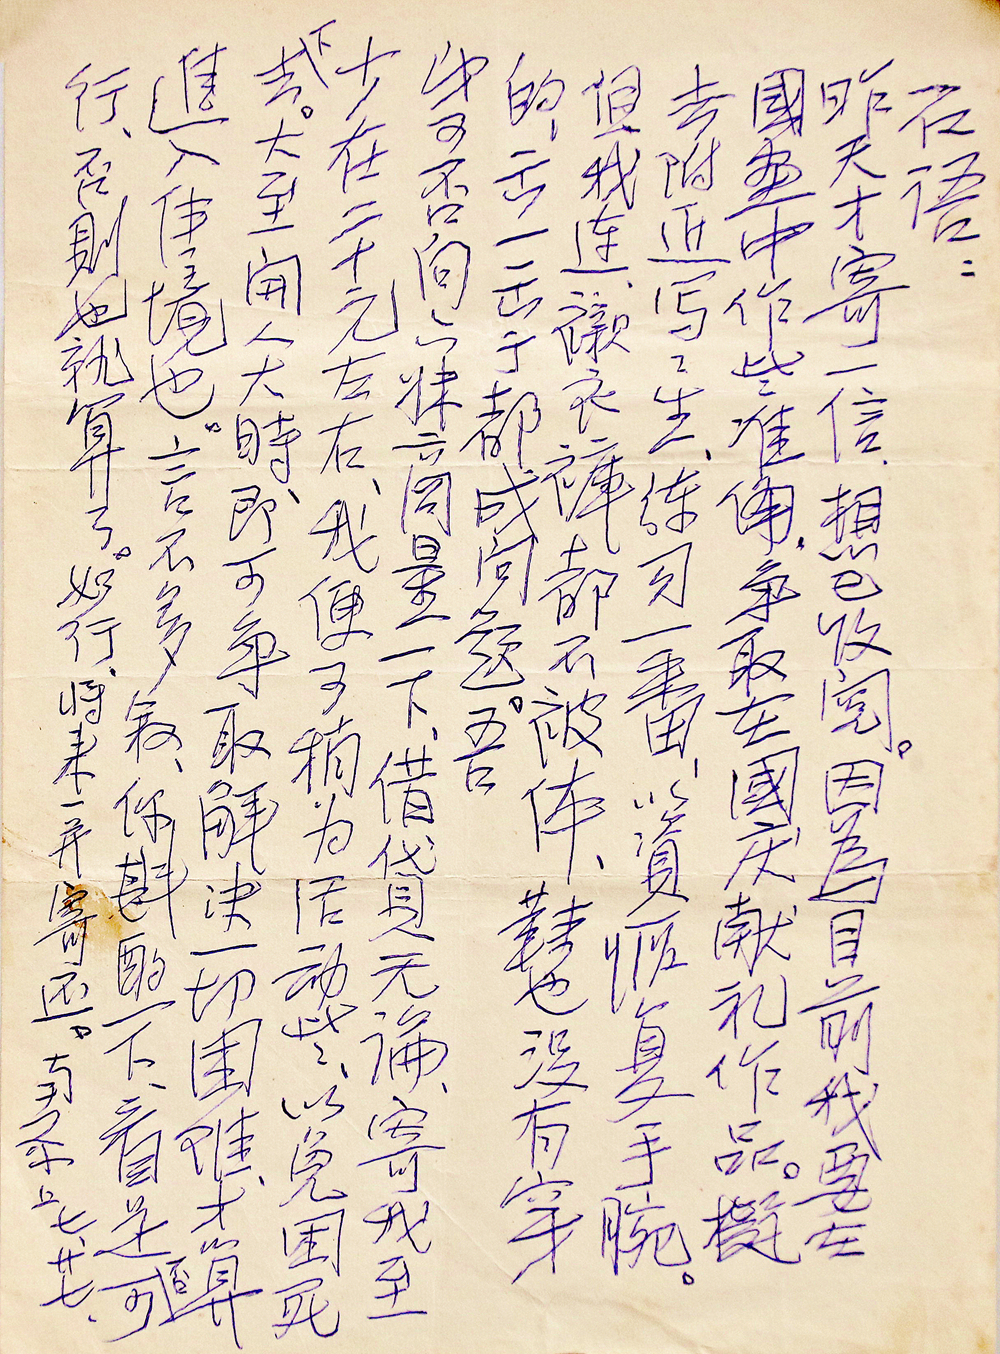 石语：
昨天才寄一信、想已收阅。因為目前我要在
國画中作些准俻、争取在國庆献礼作品。擬
去附近写写生、练习一番、以資恢复手腕。
但我连襯衣裤都不被体、鞋也没有穿
的、一出一出于都成问题。吾
母可否向小妹商量一下、借贷无論、寄我至
少在二十元左右、我便可稍为活动些、以免困死
下去。大至開人大時、即可争取解决一切困难、才算
進入佳境也。言不多敘、你斟酌一下、看是否可
行、否則也就算了。如行、将来一并寄还。 上 七、廿七、